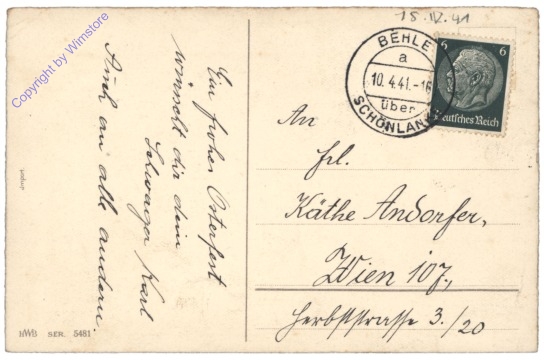 Ein frohes Osterfest
wünscht dir dein
Schwager Karl
Auch an alle andern.
HWB SER. 5481
15.IV.41
BEHLE
a
10.4.41.-16
über
SCHÖNLANKE
6 6
Deutsches Reich
An
Frl.
Käthe Andorfer,
Wien 107,
Herbststrasse 3./20
Copyright by Wimstore